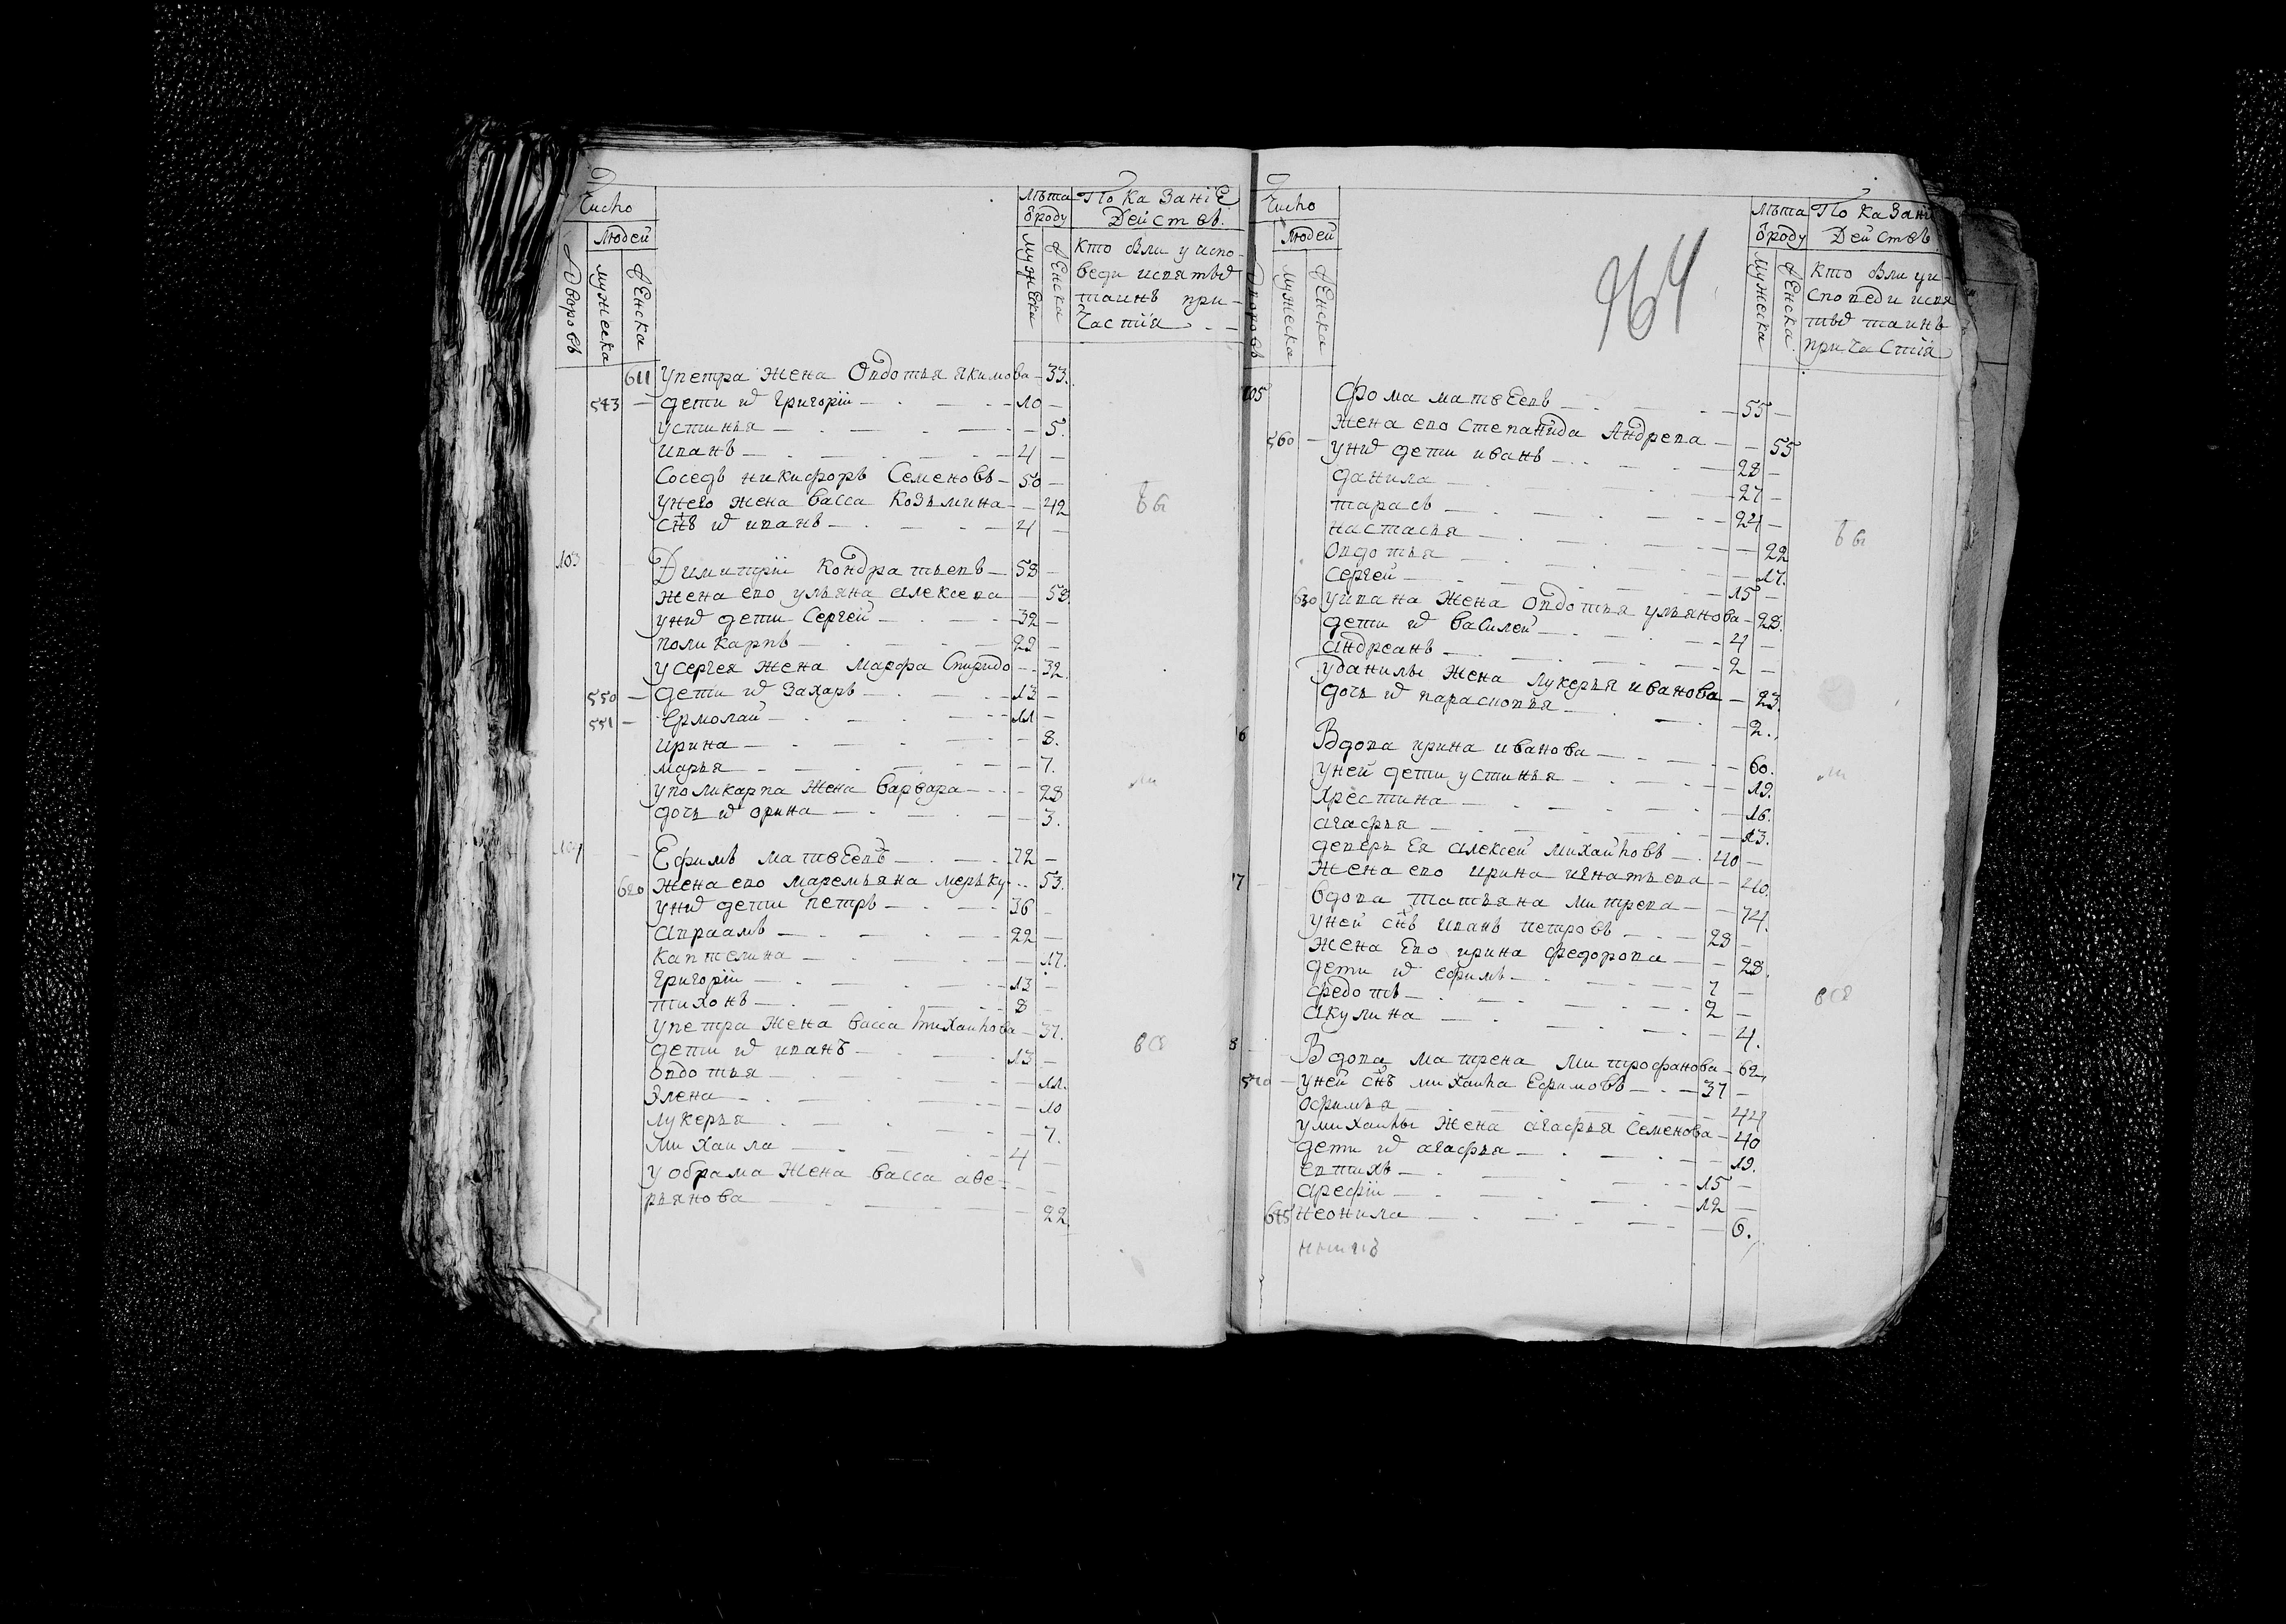 Число
Людей
Дворовъ
мужеска
женска
Лѣта ѿроду
мужеска
женска
Показаніе Действъ.
кто были у испо-
веди исвятыхъ
таинъ при-
частія
611 упетра жена Овдотья якимова 33.
543 дети их Григоріи 10
устинья 5.
иванъ 4
Соседъ никифоръ Семеновъ 50
унего жена васса козьмина 42
снъ их иванъ 4
103 Димитріи Кондратьевъ 58
жена ево ульяна алексева 58.
уних дети Сергей 32
поликарпъ 29
усергея жена марфа Спиридо 32.
550 дети их захаръ 13
551 Ермолай 11
ирина 8.
марья 7.
уполикарпа жена варвара 28
дочь их орина 3.
104 Ефимъ матвеевъ 72
620 жена ево маремьяна мерьку 53.
уних дети петръ 36
авраамъ 22
каптелина 17.
Григоріи 13
тихонъ 8
упетра жена васса михаилова 37.
дети их иванъ 13
овдотья 11.
Элена 10
лукерья 7.
михаила 4
у обрама жена васса аве-
рьянова 22
бы
ли
всѣ
Число
Людей
Дворовъ
мужеска
женска
964
Лѣта ѿроду
мужеска
женска
Показаніе Действъ
кто были уи-
споведи исвя
тых таинъ
причастія
105 Фома матвеевъ 55
жена ево степанида Андрева 55
560 уних дети иванъ 28
данила 27
тарасъ 24
настасья 22
овдотья 17.
сергей 15
630 уивана жена Овдотья ульянова 28.
дети их василей 4
андреанъ 2
уданилы жена лукерья иванова 23.
дочь их парасковья 2.
6 Вдова ирина иванова 60.
уней дети устинья 19.
христина 16.
агафья 13.
деверь Ея алексей михайловъ 40
жена ево ирина игнатьева 40.
7 вдова татьяна митрева 74.
уней снъ иванъ петровъ 28
жена ево ирина федорова 28.
дети их ефимъ 7
федотъ 2
акулина 4.
8 Вдова матрена митрофанова 62,
570 уней снъ михаила Ефимовъ 37
офимья 44
умихаилы жена агафья Семенова 40
дети их агафья 19.
евтихъ 15
арефіи 12
645 неонила 6.
бы
ли
всѣ